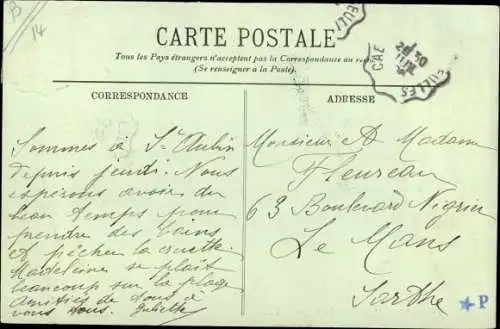 B
14
CARTE POSTALE
Tous les Pays étrangers n'acceptent pas la Correspondance au
(Se renseigner à la Poste)
CORRESPONDANCE
ADRESSE
Sommes à St Aubin
depuis jeudi. Nous
espérons avoir du
beau temps pour
prendre des bains
et pêcher la crevette.
Madeleine se plaît
beaucoup sur la plage
amitiés de tous à
vous tous. Juliette
Monsieur & Madame
Fleureau
63 Boulevard Négrier
Le Mans
Sarthe
P